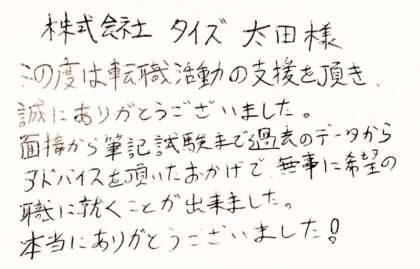 株式会社 タイズ 太田様
この度は転職活動の支援を頂き
誠にありがとうございました。
面接から筆記試験まで過去のデータから
アドバイスを頂いたおかげで、無事に希望の
職に就くことが出来ました。
本当にありがとうございました!